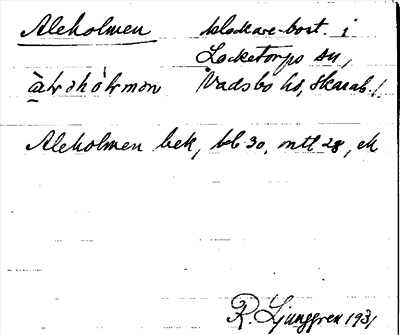 Aleholmen klockare-bost. i
Locketorps sn,
Vadsbo hd, Skarab. l.
Aleholmen bek, bl 30, mtl 28, ek
R Ljunggren 1931